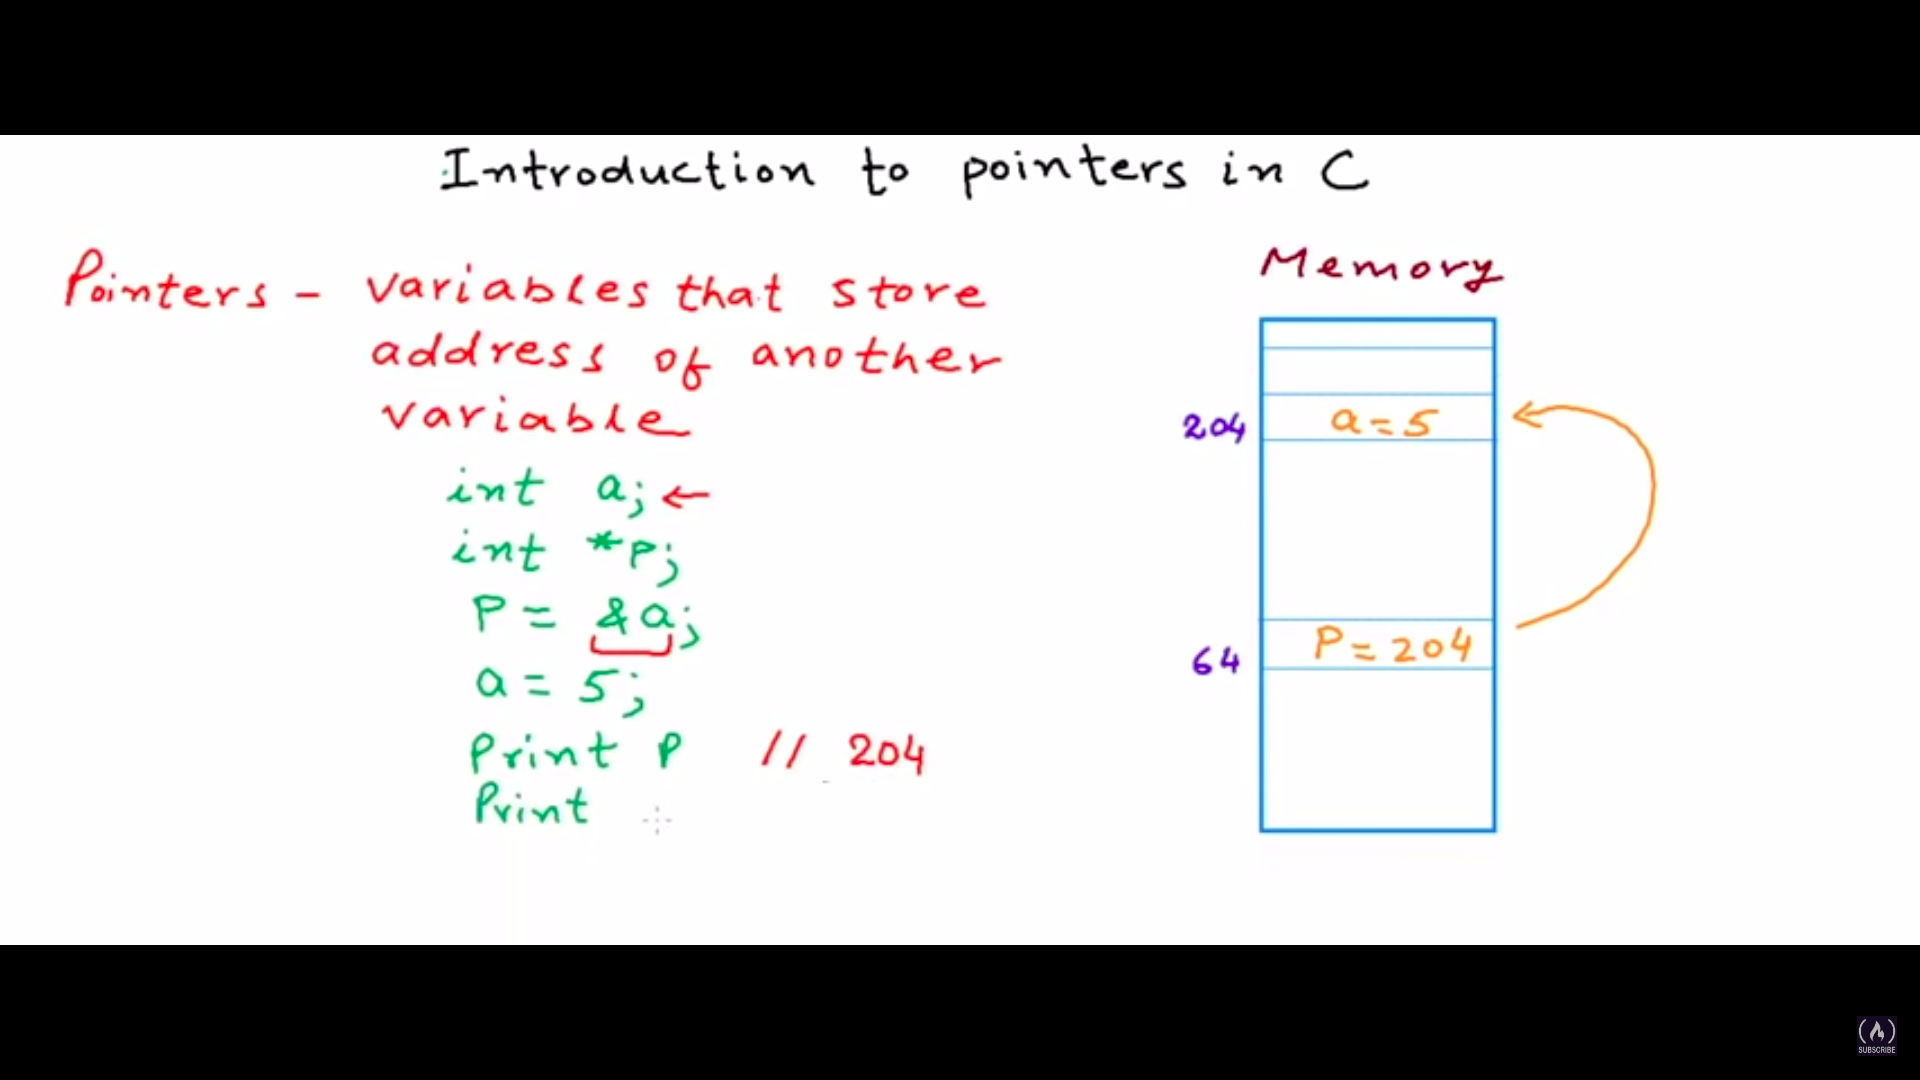 Introduction to pointers in C
Pointers - variables that store
address of another
variable
int a; ←
int *p;
P = &a;
a = 5;
Print P // 204
Print
Memory
204 a = 5
64 P = 204
SUBSCRIBE